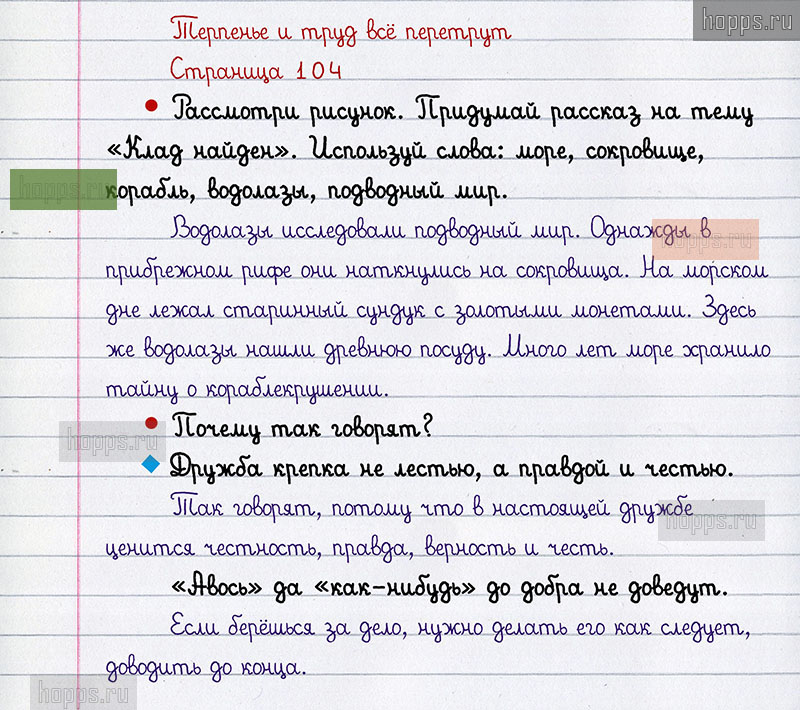 hopps.ru
Терпенье и труд всё перетрут
Страница 104
• Рассмотри рисунок. Придумай рассказ на тему
«Клад найден». Используй слова: море, сокровище,
hopps.ru
корабль, водолазы, подводный мир.
Водолазы исследовали подводный мир. Однажды в
hopps.ru
прибрежном рифе они наткнулись на сокровища. На морском
дне лежал старинный сундук с золотыми монетами. Здесь
же водолазы нашли древнюю посуду. Много лет море хранило
тайну о кораблекрушении.
• Почему так говорят?
hopps.ru
Дружба крепка не лестью, а правдой и честью.
Так говорят, потому что в настоящей дружбе
hopps.ru
ценится честность, правда, верность и честь.
«Авось» да «как-нибудь» до добра не доведут.
Если берёшься за дело, нужно делать его как следует,
доводить до конца.
hopps.ru